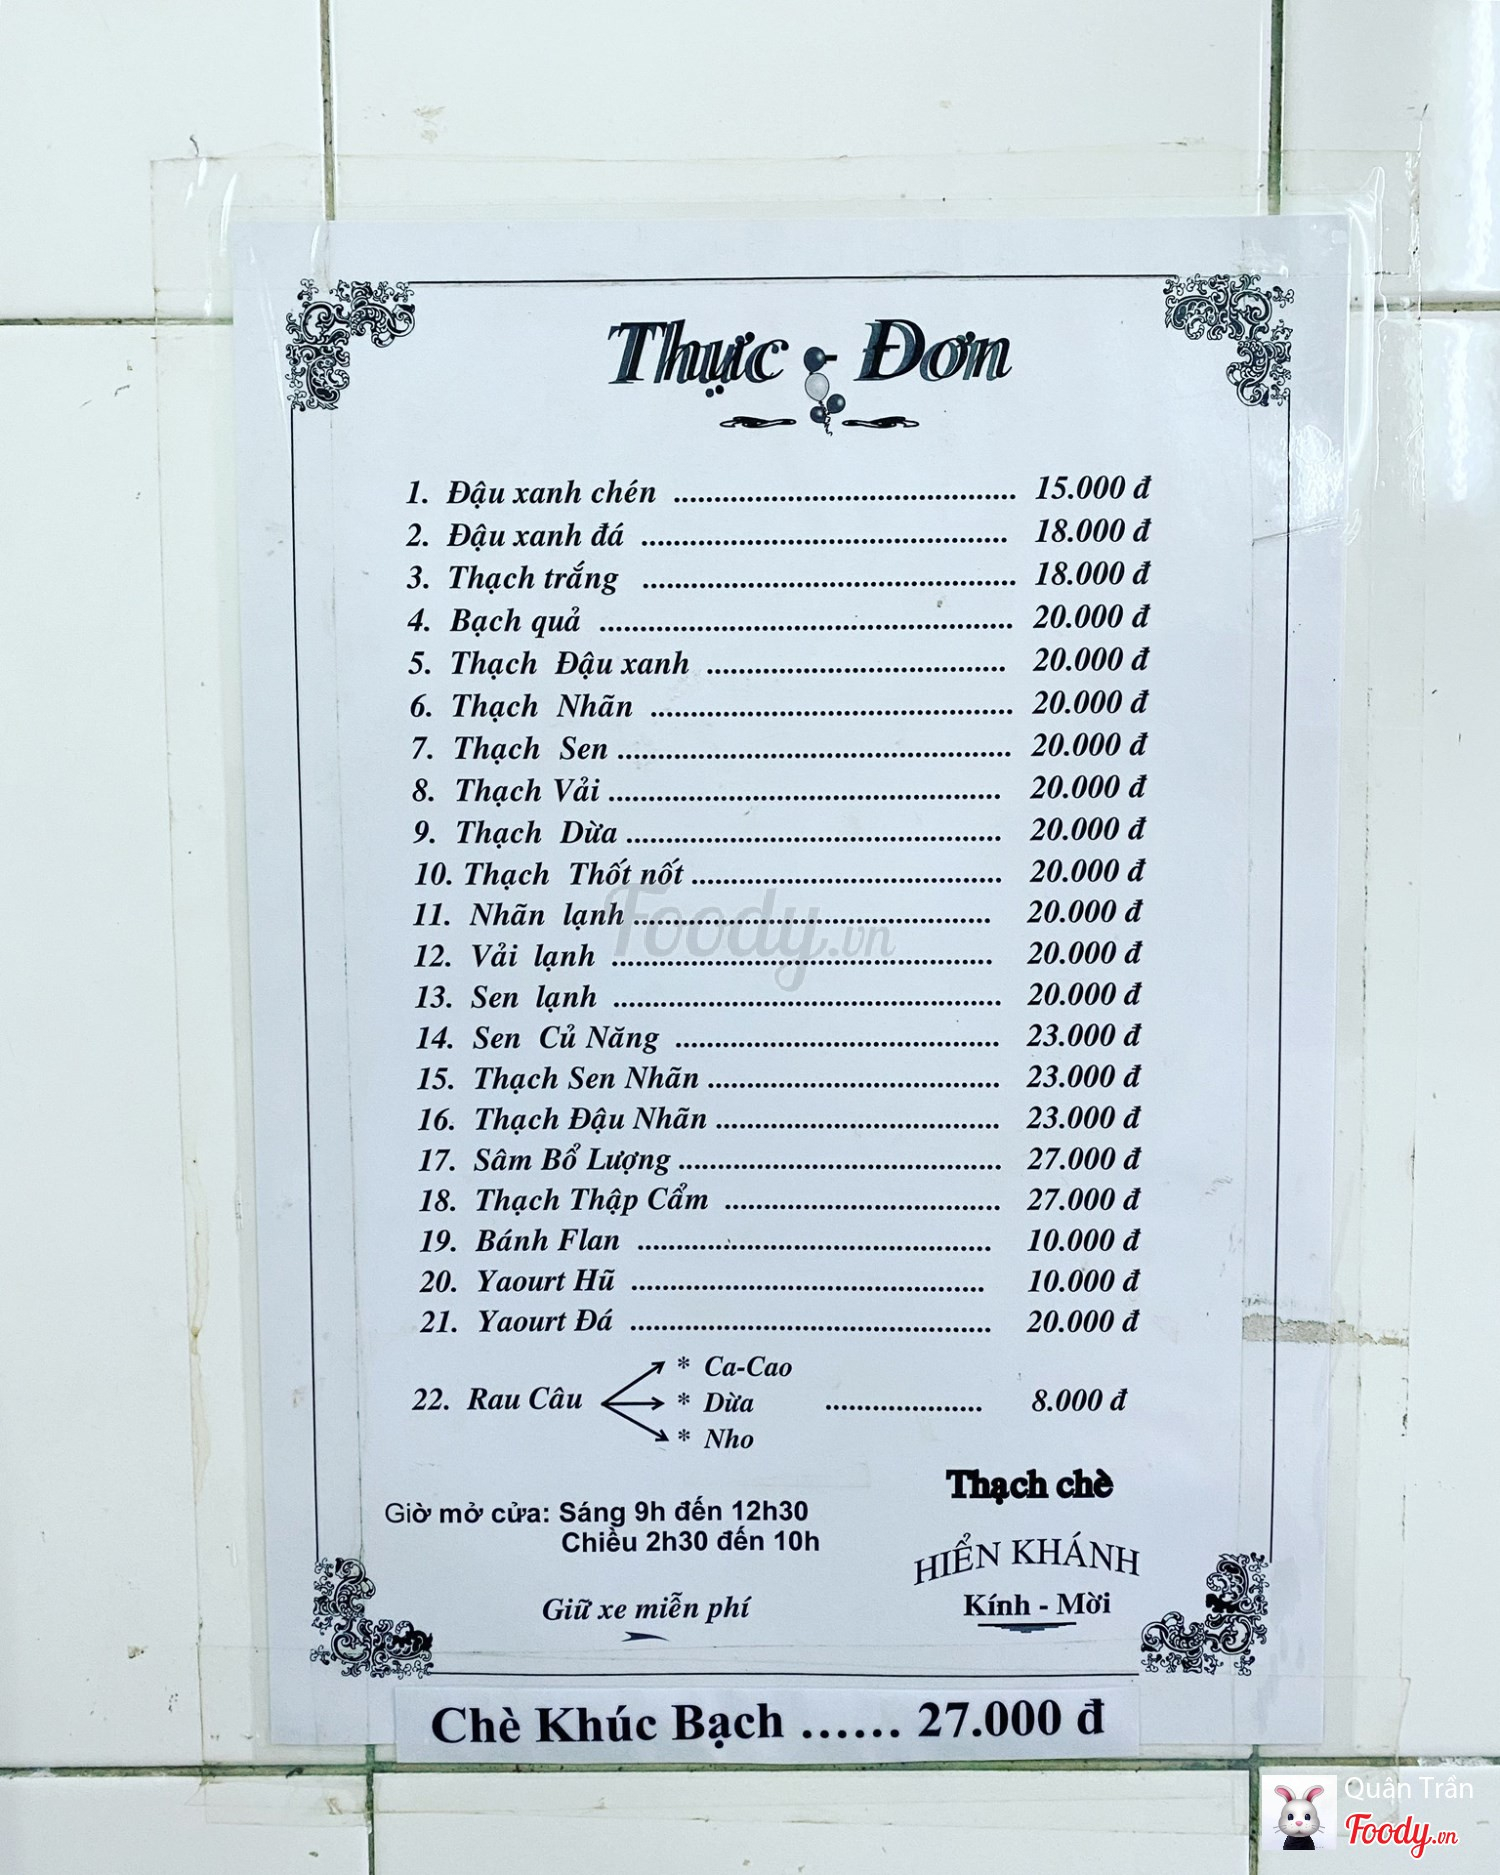 Thực - Đơn
1. Đậu xanh chén ........................................... 15.000 đ
2. Đậu xanh đá .............................................. 18.000 đ
3. Thạch trắng ............................................... 18.000 đ
4. Bạch quả .................................................... 20.000 đ
5. Thạch Đậu xanh ..................................... 20.000 đ
6. Thạch Nhãn ............................................. 20.000 đ
7. Thạch Sen ................................................. 20.000 đ
8. Thạch Vải ................................................. 20.000 đ
9. Thạch Dừa ............................................... 20.000 đ
10. Thạch Thốt nốt ....................................... 20.000 đ
11. Nhãn lạnh ............................................. 20.000 đ
12. Vải lạnh ................................................ 20.000 đ
13. Sen lạnh ................................................. 20.000 đ
14. Sen Củ Năng ......................................... 23.000 đ
15. Thạch Sen Nhãn ..................................... 23.000 đ
16. Thạch Đậu Nhãn .................................... 23.000 đ
17. Sâm Bổ Lượng ......................................... 27.000 đ
18. Thạch Thập Cẩm ................................... 27.000 đ
19. Bánh Flan ............................................. 10.000 đ
20. Yaourt Hũ ............................................. 10.000 đ
21. Yaourt Đá .............................................. 20.000 đ
* Ca-Cao
22. Rau Câu * Dừa .................... 8.000 đ
* Nho
Thạch chè
Giờ mở cửa: Sáng 9h đến 12h30
Chiều 2h30 đến 10h
HIỂN KHÁNH
Kính - Mời
Giữ xe miễn phí
Chè Khúc Bạch ...... 27.000 đ
Foody.vn
Quân Trần
Foody.vn